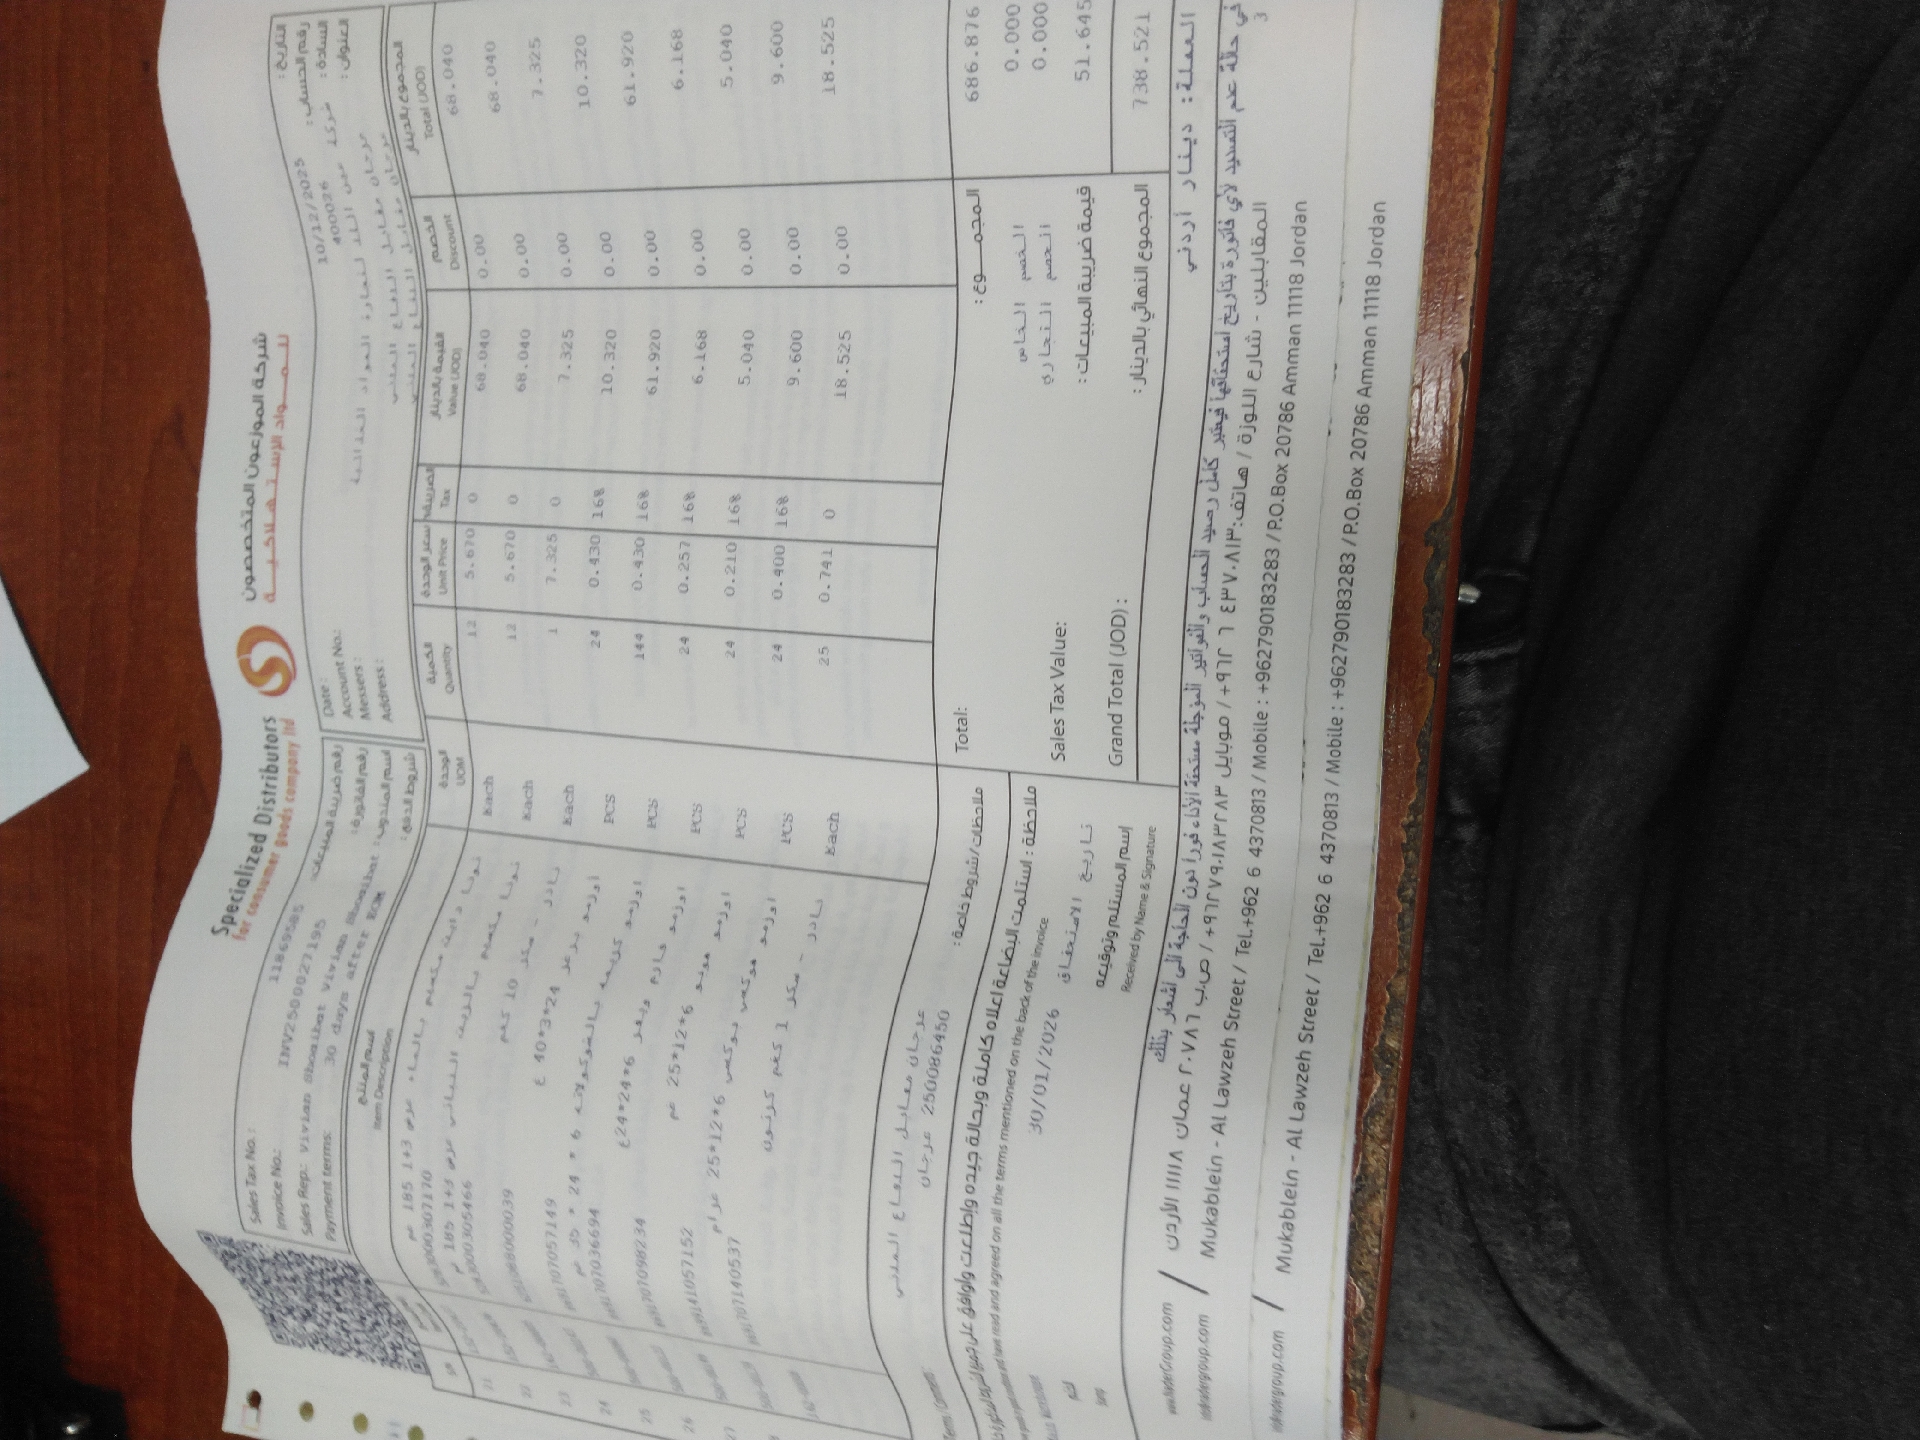 Specialized Distributors
for consumer goods company ltd
شركة الموزعون المتخصصون
للمواد الإستهلاكية
Sales Tax No.: 11869585 رقم ضريبة المبيعات:
Invoice No.: INV2500027195 رقم الفاتورة:
Sales Rep: Vivian Shoaibat vivian Shoaibat اسم المندوب:
Payment terms: 30 days after EOM شروط الدفع:
Date: 10/12/2025 التاريخ:
Account No.: 400026 رقم الحساب:
Messers: شركة عين اللد لتجارة المواد الغذائية السادة:
Address: مرجان مقابل الدفاع المدني العنوان:
مرجان مقابل الدفاع المدني
اسم المنتج الوحدة الكمية سعر الوحدة الضريبة القيمة بالدينار الخصم المجموع بالدينار
Item Description UOM Quantity Unit Price Tax Value (JOD) Discount Total (JOD)
21 185 1+3 غم Each 12 5.670 0 68.040 0.00 68.040
22 185 1+3 غم Each 12 5.670 0 68.040 0.00 68.040
23 نادر - سكر 10 كغم Each 1 7.325 0 7.325 0.00 7.325
24 40*3*24 غ PCS 24 0.430 16% 10.320 0.00 10.320
25 اوزمو كريمه بالشوكولاته 6 * 24 * 35 غم PCS 144 0.430 16% 61.920 0.00 61.920
26 24*24*6غ PCS 24 0.257 16% 6.168 0.00 6.168
اوزمو مونو 25*12*6 غم PCS 24 0.210 16% 5.040 0.00 5.040
اوزمو موكس بوكس 25*12*6 غرام PCS 24 0.400 16% 9.600 0.00 9.600
نادر - سكر 1 كغم كرتون Each 25 0.741 0 18.525 0.00 18.525
مرجان مقابل الدفاع المدني
250086450 مرجان
ملاحظات/شروط خاصة:
Total: المجمـــوع: 686.876
الخصم الخاص 0.000
الخصم التجاري 0.000
Sales Tax Value: قيمة ضريبة المبيعات: 51.645
Grand Total (JOD): المجموع النهائي بالدينار: 738.521
ملاحظة: استلمت البضاعة اعلاه كاملة وبحالة جيده وإطلعت واوافق على
and have read and agreed on all the terms mentioned on the back of the invoice
30/01/2026 تاريخ الاستحقاق
إسم المستلم وتوقيعه
Received by Name & Signature
العملة: دينار أردني
في حالة عدم التسديد لأي فاتورة بتاريخ استحقاقها فيعتبر كامل رصيد الحساب والفواتير المؤجلة مستحقة الأداء فورا دون الحاجة الى اشعار بذلك
3
المقابلين - شارع اللوزة / هاتف: ٤٣٧٠٨١٣ ٦ ٩٦٢+ / موبايل ٩٦٢٧٩٠١٨٣٢٨٣+ / ص.ب ٢٠٧٨٦ عمان ١١١١٨ الأردن
Mukablein - Al Lawzeh Street / Tel.+962 6 4370813 / Mobile : +962790183283 / P.O.Box 20786 Amman 11118 Jordan
Mukablein - Al Lawzeh Street / Tel.+962 6 4370813 / Mobile : +962790183283 / P.O.Box 20786 Amman 11118 Jordan